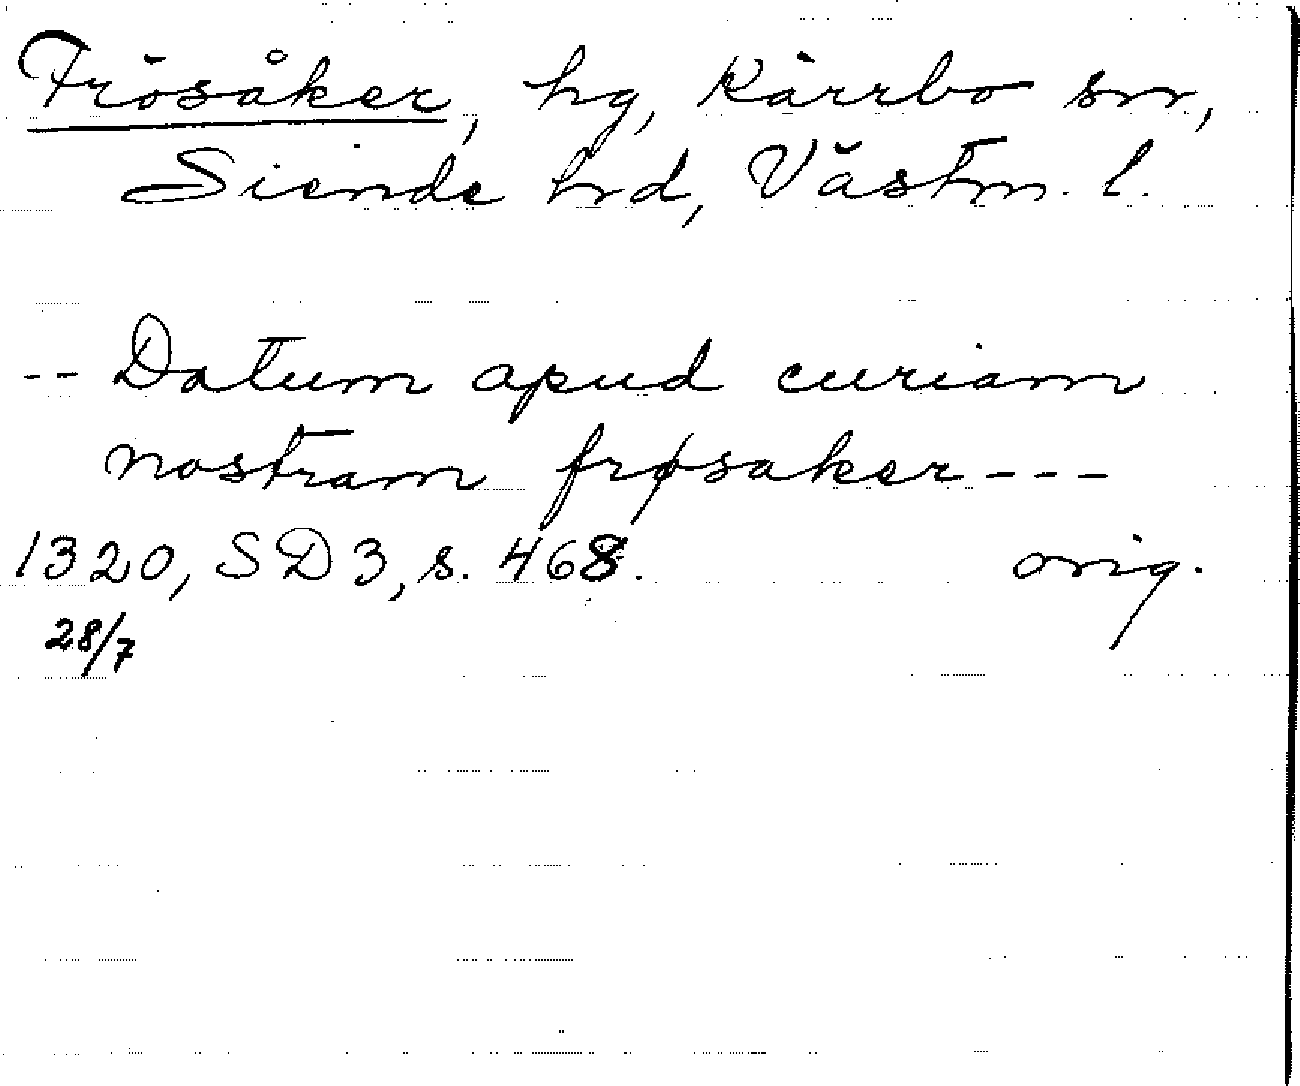 Frösåker, hg, Kärrbo sn,
Siende hd, Västm. l.
-- Datum apud curiam
nostram frøsaker---
1320, SD3, s. 468. orig.
28/7